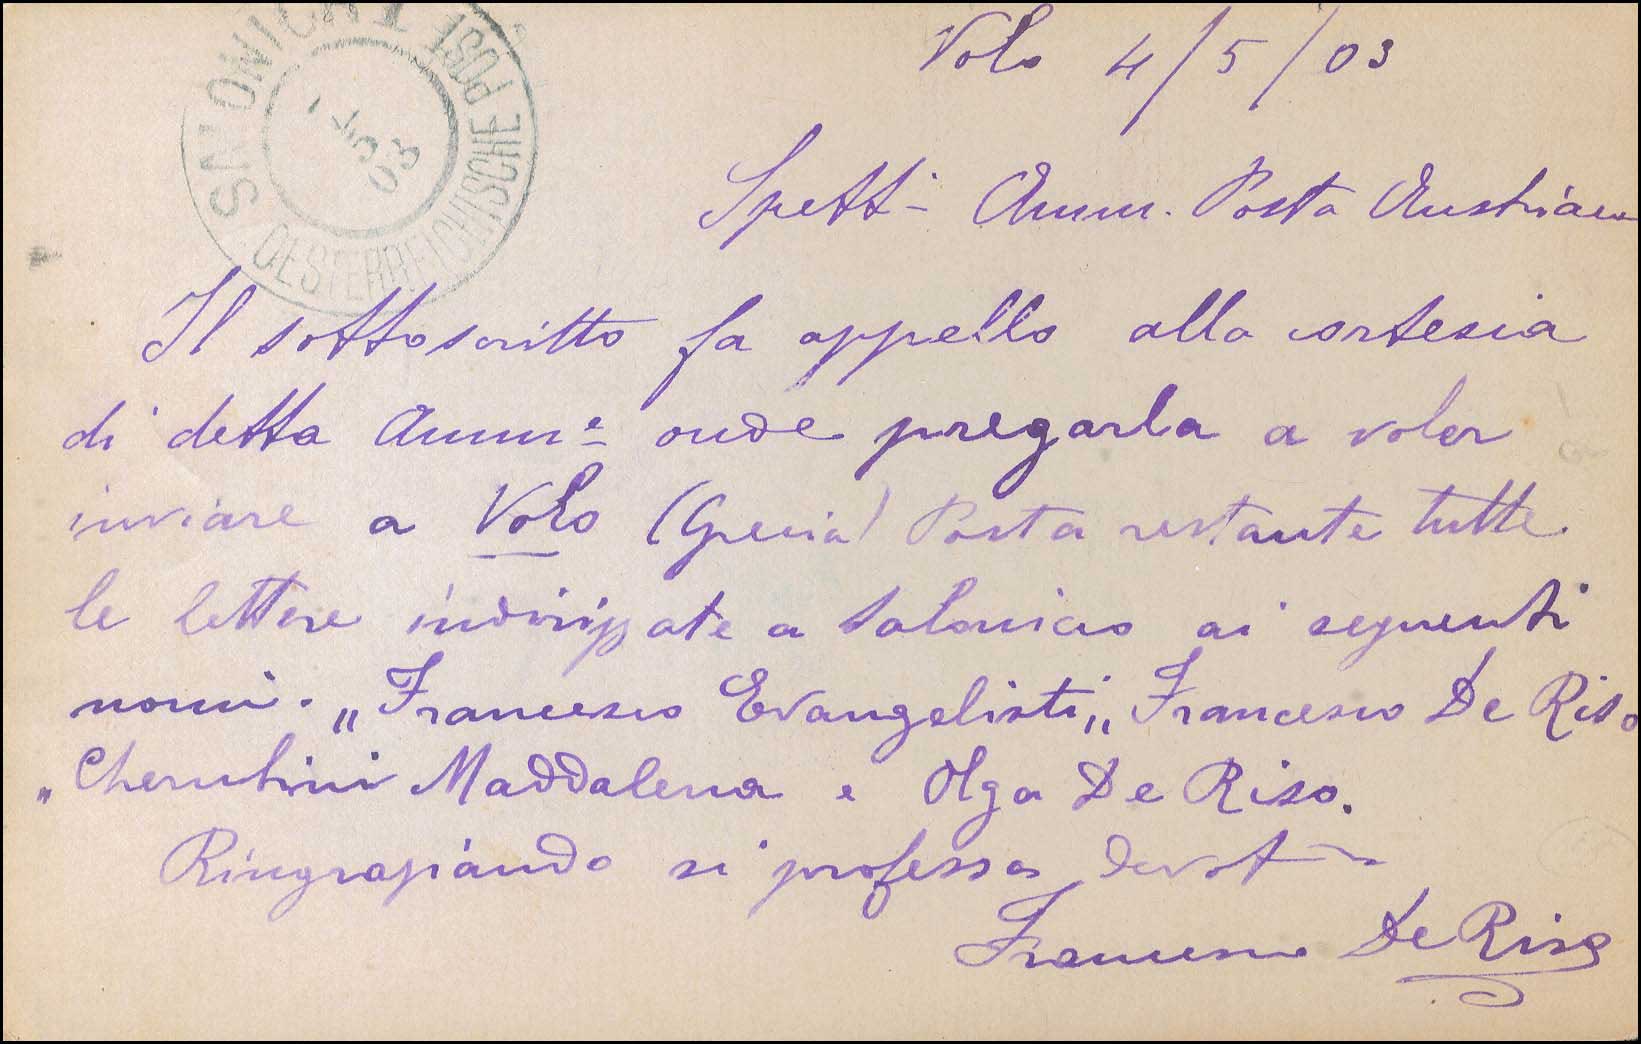 SALONICH I
OESTERREICHISCHE POST
03
Volo 4/5/03
Spett- Amm. Posta Austriaca
Il sottoscritto fa appello alla cortesia
di detta Amme- onde pregarla a voler
inviare a Volo (Grecia) Posta restante tutte
le lettere indirizzate a Salonicco ai seguenti
nomi. „Francesco Evangelisti„ Francesco De Riso
„Cherubini Maddalena e Olga De Riso.
Ringraziando si professa devot
Francesco De Riso